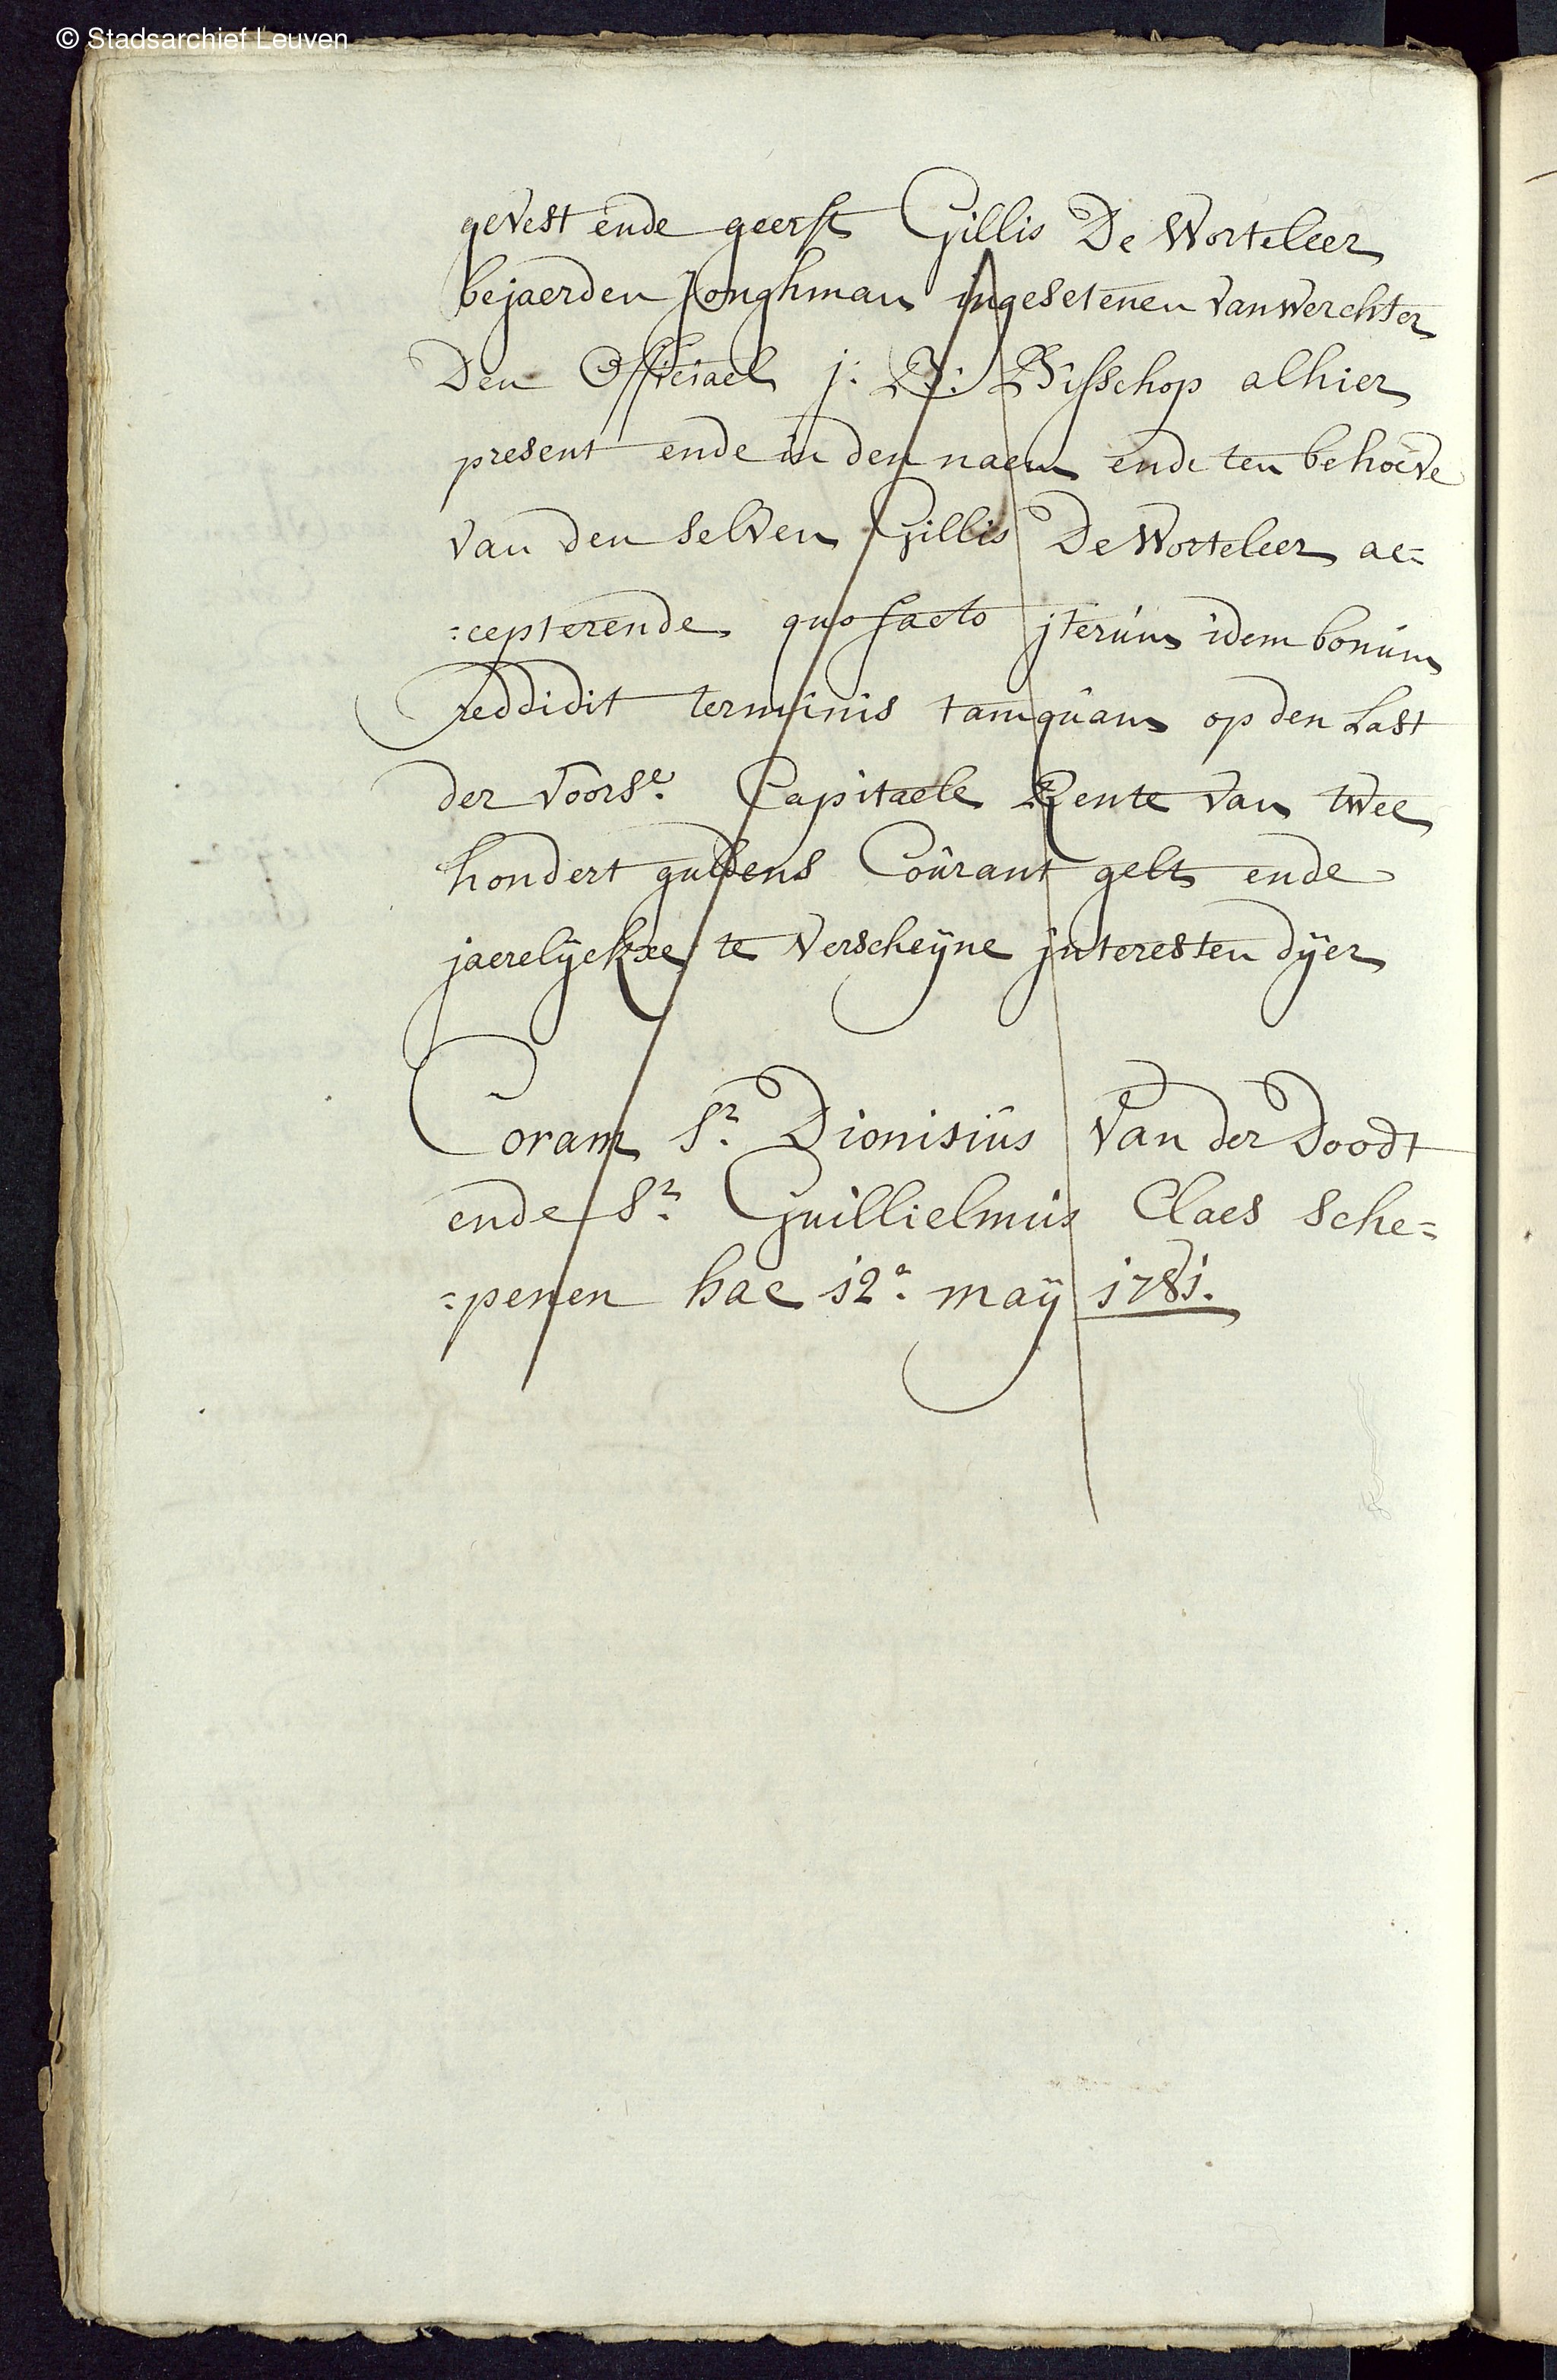 © Stadsarchief Leuven
gevest ende geerft Gillis De Worteleer
bejaerden Jonghman ingesetenen van werchter
Den Officiael j: B: Bisschop alhier
present ende in den naem ende ten behoeve
van den selven Gillis De Worteleer ac=
=cepterende quo facto jterum idem bonum
reddidit terminis tamquam op den Last
der voorse. Capitaele Rente van twee
hondert guldens Courant gelt ende
jaerelijckxe te verscheijne jnteresten dijer
Coram Sr. Dionisius Van der Doodt
ende Sr. Guillielmus Claes Sche=
=penen hac 12a. maij 1781.